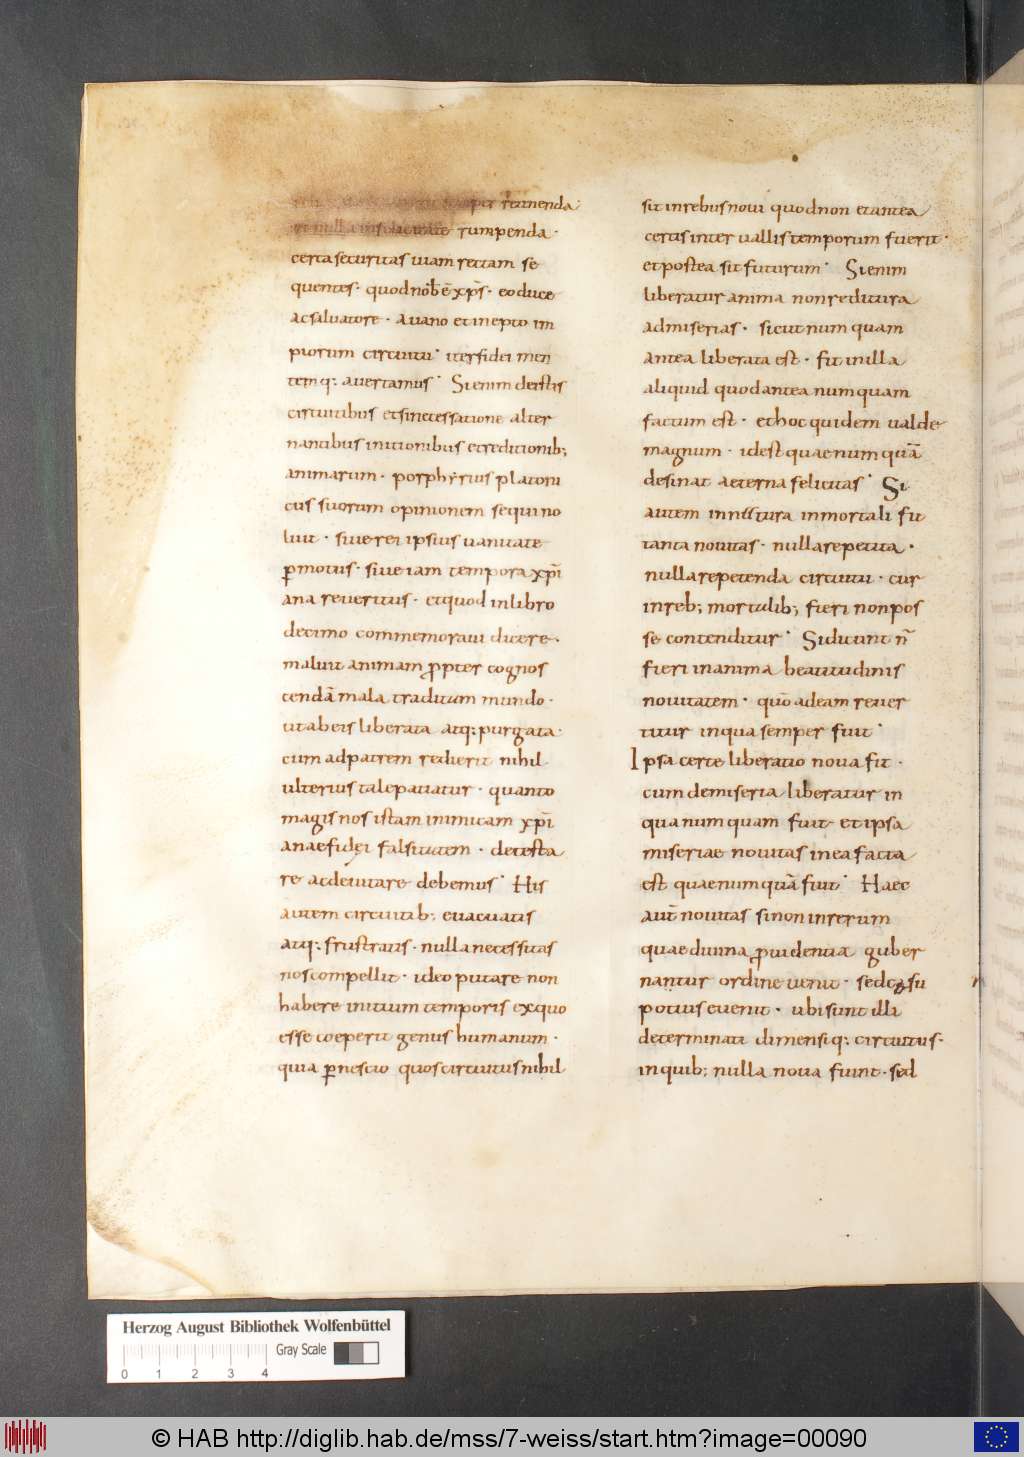 semper retinenda
et nulla infelicitate rumpenda·
certa securitas uiam rectam se
quentes· quod nob̄ ē xp̄s· eo duce
ac saluatore· auano et inepto im
piorum circuitu· iter fidei men
temq; auertamus· Si enim de istis
circuitibus et sine cessatione alter
nantibus initionibus et reditionib;
animarum· porphẏrius platoni
cus suorum opinionem sequi no
luit· siue rei ipsius uanitate
ꝑmotus· siue iam tempora xp̄i
ana reueritus· et quod in libro
decimo commemoraui dicere·
maluit animam ꝓpter cognos
cendā mala traditam mundo·
ut ab eis liberata atq; purgata·
cum ad patrem redierit nihil
ulterius tale patiatur· quanto
magis nos istam inimicam xp̄i
anae fidei falsitatem· detesta
re ac deuitare debemus· His
autem circuitib; euacuatis
atq; frustratis· nulla necessitas
nos compellit· ideo putare non
habere initium temporis ex quo
esse coeperit genus humanum·
quia ꝑ nescio quos circuitus nihil
sit in rebus noui quod non et antea
certis interuallis temporum fuerit·
et postea sit futurum· Si enim
liberatur anima non reditura
ad miserias· sicut numquam
antea liberata est· fit in illa
aliquid quod antea numquam
factum est· et hoc quidem ualde
magnum· id est quae numquā
desinat aeterna felicitas· Si
autem in natura inmortali fit
tanta nouitas· nulla repetita·
nulla repetenda circuitu· cur
in reb; mortalib; fieri non pos
se contenditur· Si dicunt n̄
fieri in anima beatitudinis
nouitatem· quō ad eam reuer
titur in qua semper fuit·
Ipsa certe liberatio noua fit·
cum de miseria liberatur in
qua numquam fuit· et ipsa
miseriae nouitas in ea facta
est quae numquā fuit· Haec
aut̄ nouitas si non in rerum
quae diuina ꝓuidentia guber
nantur ordine uenit· sed casu
potius euenit· ubi sunt illi
determinati dimensiq; circuitus·
in quib; nulla noua fiunt· sed
Herzog August Bibliothek Wolfenbüttel
Gray Scale
0 1 2 3 4
© HAB http://diglib.hab.de/mss/7-weiss/start.htm?image=00090